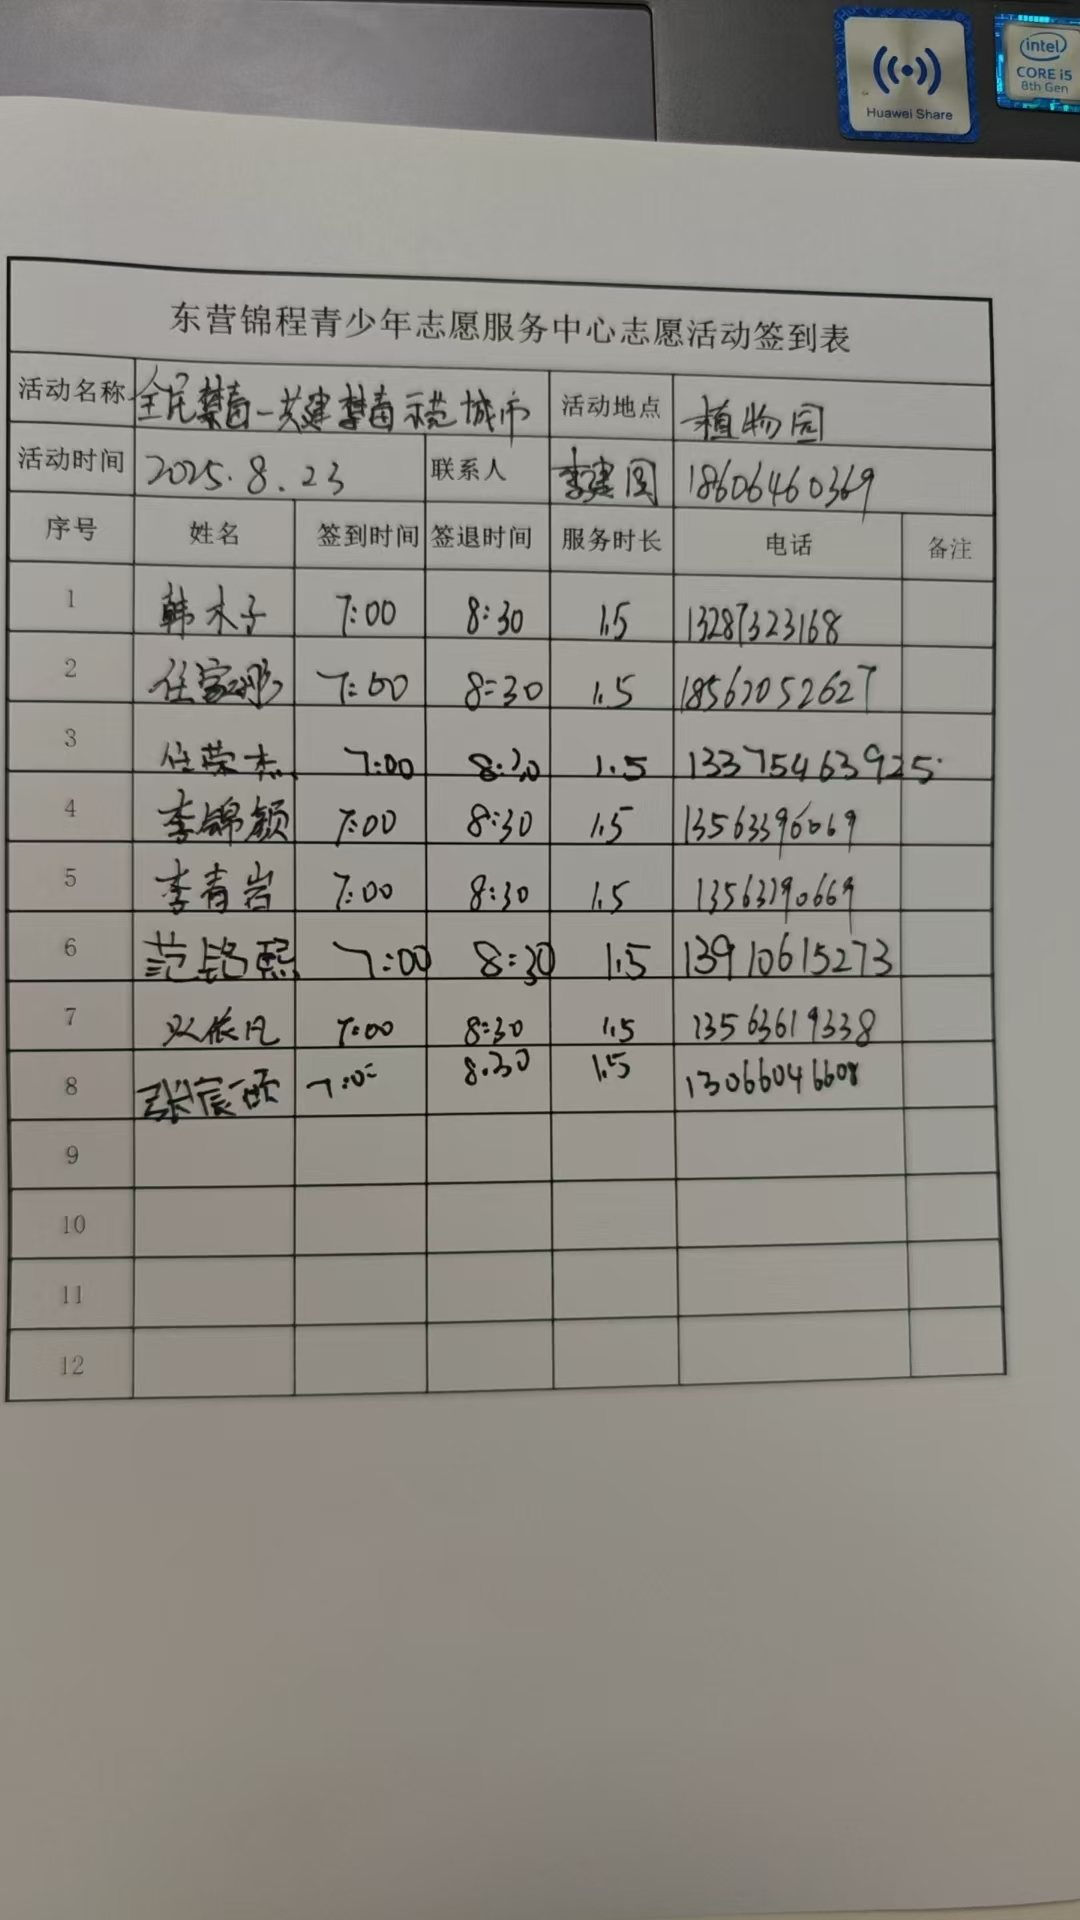 Huawei Share
intel
CORE i5
8th Gen
东营锦程青少年志愿服务中心志愿活动签到表
活动名称 全民禁毒-共建禁毒示范城市 活动地点 植物园
活动时间 2025.8.23 联系人 李建国 18606460369
序号 姓名 签到时间 签退时间 服务时长 电话 备注
1 韩木子 7:00 8:30 1.5 13287323168
2 任家彤 7:00 8:30 1.5 18562052627
3 任荣杰 7:00 8:30 1.5 13375463925
4 李锦颖 7:00 8:30 1.5 13563396069
5 李青岩 7:00 8:30 1.5
6 范铭熙 7:00 8:30 1.5 13910615273
7 依凡 7:00 8:30 1.5 13563619338
8 张宸硕 7:00 8.30 1.5 13066046608
9
10
11
12